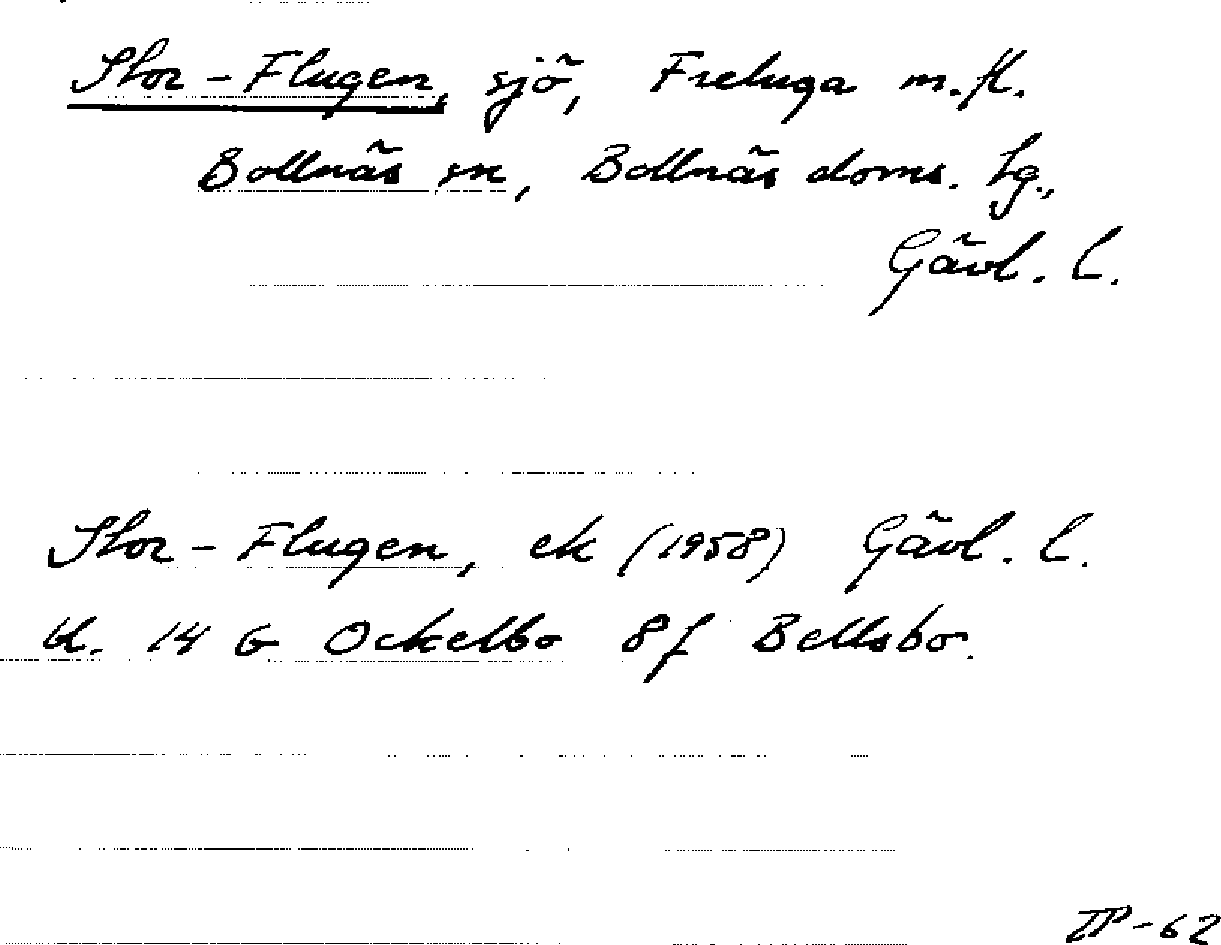 Stor-Flugen, sjö, Freluga m.fl.
Bollnäs sn, Bollnäs doms. tg.,
Gävl. l.
Stor-Flugen, ek (1958) Gävl. l.
bl. 14 G Ockelbo 8f Bellsbo.
IP-62